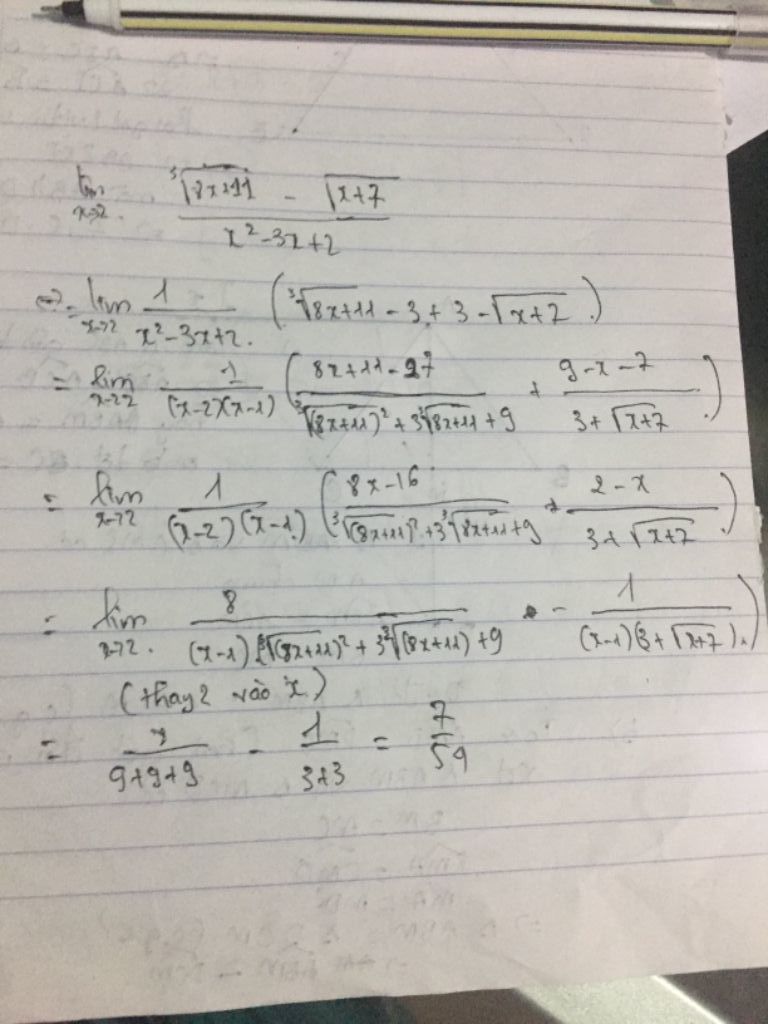 lim x→2 (∛(8x+11) - √(x+7)) / (x²-3x+2)
⇔ = lim x→2 1/(x²-3x+2) (∛(8x+11) - 3 + 3 - √(x+7))
= lim x→2 1/((x-2)(x-1)) ((8x+11-27)/(∛(8x+11)² + 3∛(8x+11) + 9) + (9-x-7)/(3+√(x+7)))
= lim x→2 1/((x-2)(x-1)) ((8x-16)/(∛(8x+11)² + 3∛(8x+11) + 9) + (2-x)/(3+√(x+7)))
= lim x→2 8/((x-1)(∛(8x+11)² + 3∛(8x+11) + 9) - 1/((x-1)(3+√(x+7)))
(thay 2 vào x)
= /(9+9+9) - 1/(3+3) = 7/54